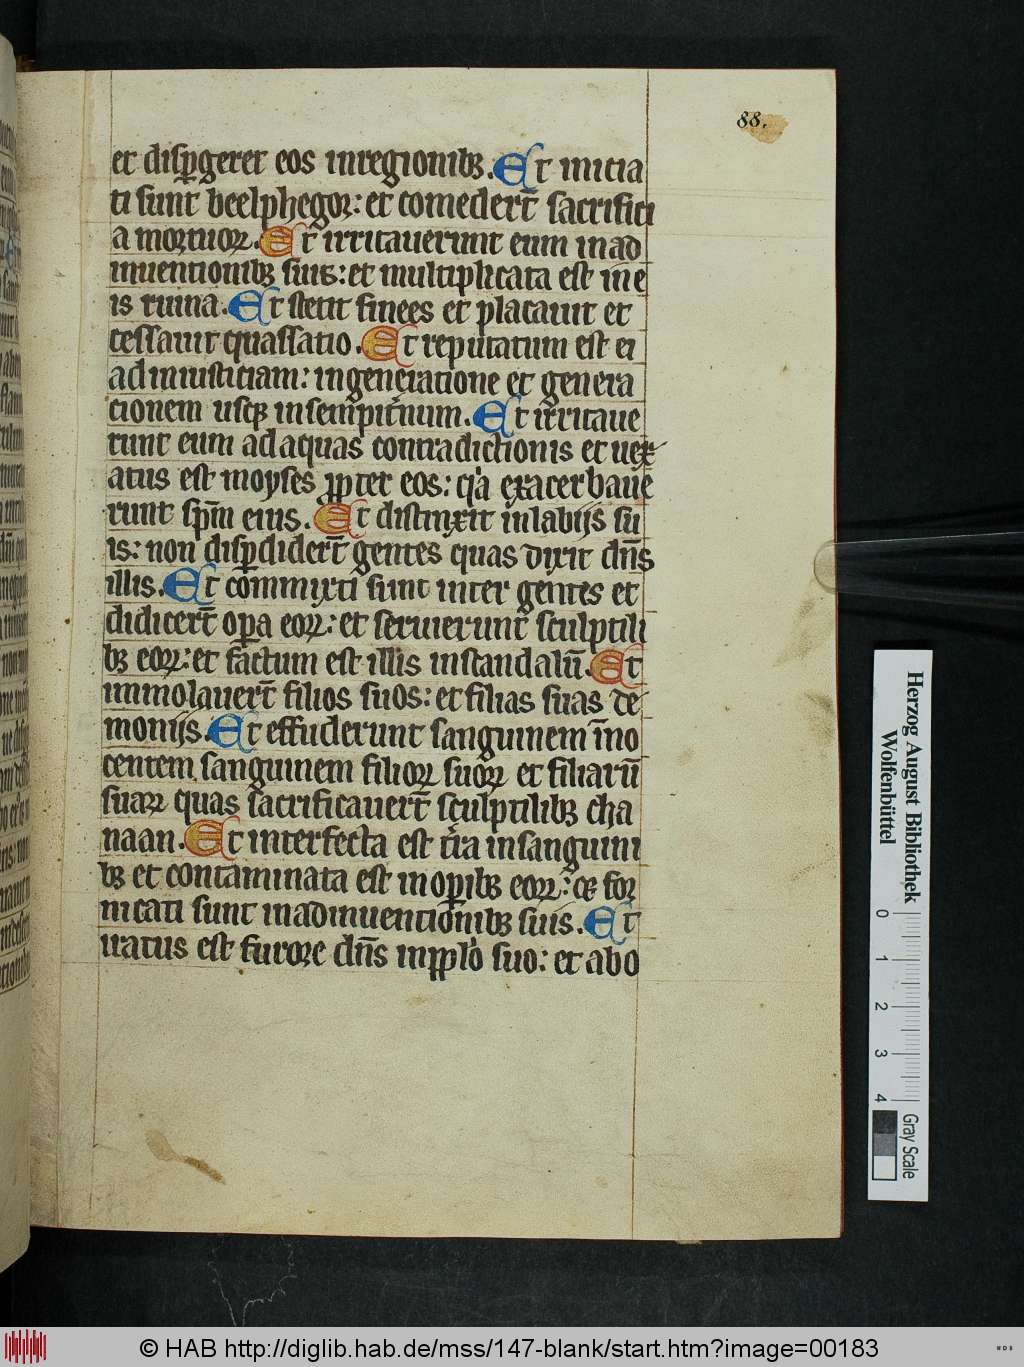 88.
et disꝑgeret eos inregionibꝫ. Et inicia
ti sunt beelphegor: et comedert̄ sacrifici
a mortuoꝝ. Et irritauerunt eum in ad
inuentionibꝫ suis: et multiplicata est in e
is ruina. Et stetit finees et placauit et
cessauit quassatio. Et reputatum est ei
ad iniusticiam: in generatione et genera
cionem usqꝫ in sempit̾num. Et irritaue
runt eum ad aquas contradictionis et uex
atus est moyses ꝓpter eos: qia exacerbaue
runt spm̄ eius. Et distinxit in labijs su
is: non disꝑdidert̄ gentes quas dixit dn̄s
illis. Et commixti sunt inter gentes et
didicert̄ oꝑa eoꝝ: et seruierunt sculptili
bꝫ eoꝝ: et factum est illis in scandalū. Et
immolauert̄ filios suos: et filias suas de
monijs. Et effuderunt sanguinem īno
centem sanguinem filioꝝ suoꝝ et filiarū
suaꝝ quas sacrificauert̄ sculptilibꝫ cha
naan. Et interfecta est tr̄a in sanguini
bꝫ et contaminata est in oꝑibꝫ eoꝝ: et for
nicati sunt in adinuentionibꝫ suis. Et
iratus est furore dn̄s in pplo suo: et abo
Herzog August Bibliothek
Wolfenbüttel
0 1 2 3 4
Gray Scale
© HAB http://diglib.hab.de/mss/147-blank/start.htm?image=00183